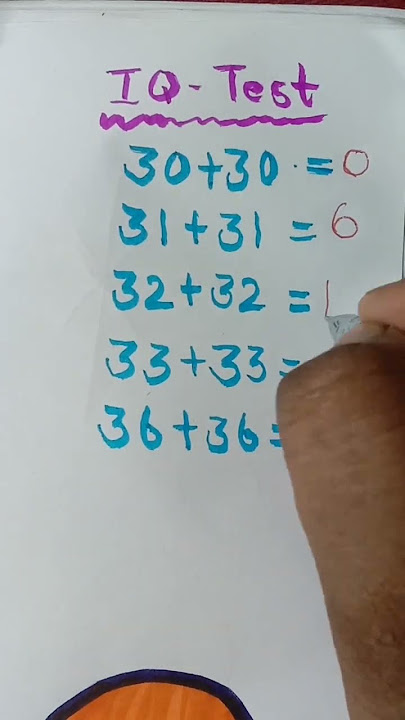 IQ-Test
30+30 = 0
31+31 = 6
32+32 =
33+33 =
36+36 =